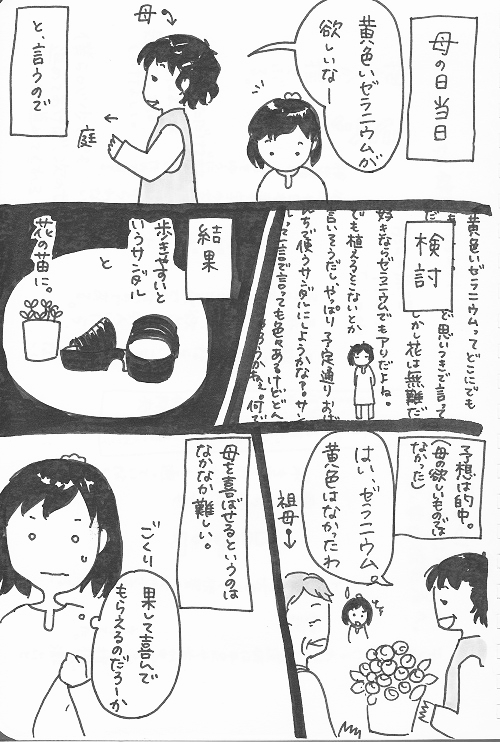 母の日当日
黄色いゼラニウムが
欲しいなー
母
庭
と、言うので
検討
黄色いゼラニウムってどこにでも
で思いつきで言って
しかし花は無難だ
好きならゼラニウムでもアリだよね。
でも植えるとこないとか
言いそうだし、やっぱり予定通りおば
ちで使うサンダルにしようかな?サン
って一言で言っても色々あるけどどん
結果
歩きやすいと
いうサンダル
と
花の苗に。
予想は的中。
(母の欲しいものでは
なかった)
はい、ゼラニウム。
黄色はなかったわ
祖母
母を喜ばせるというのは
なかなか難しい。
ごくり
果して喜んで
もらえるのだろーか